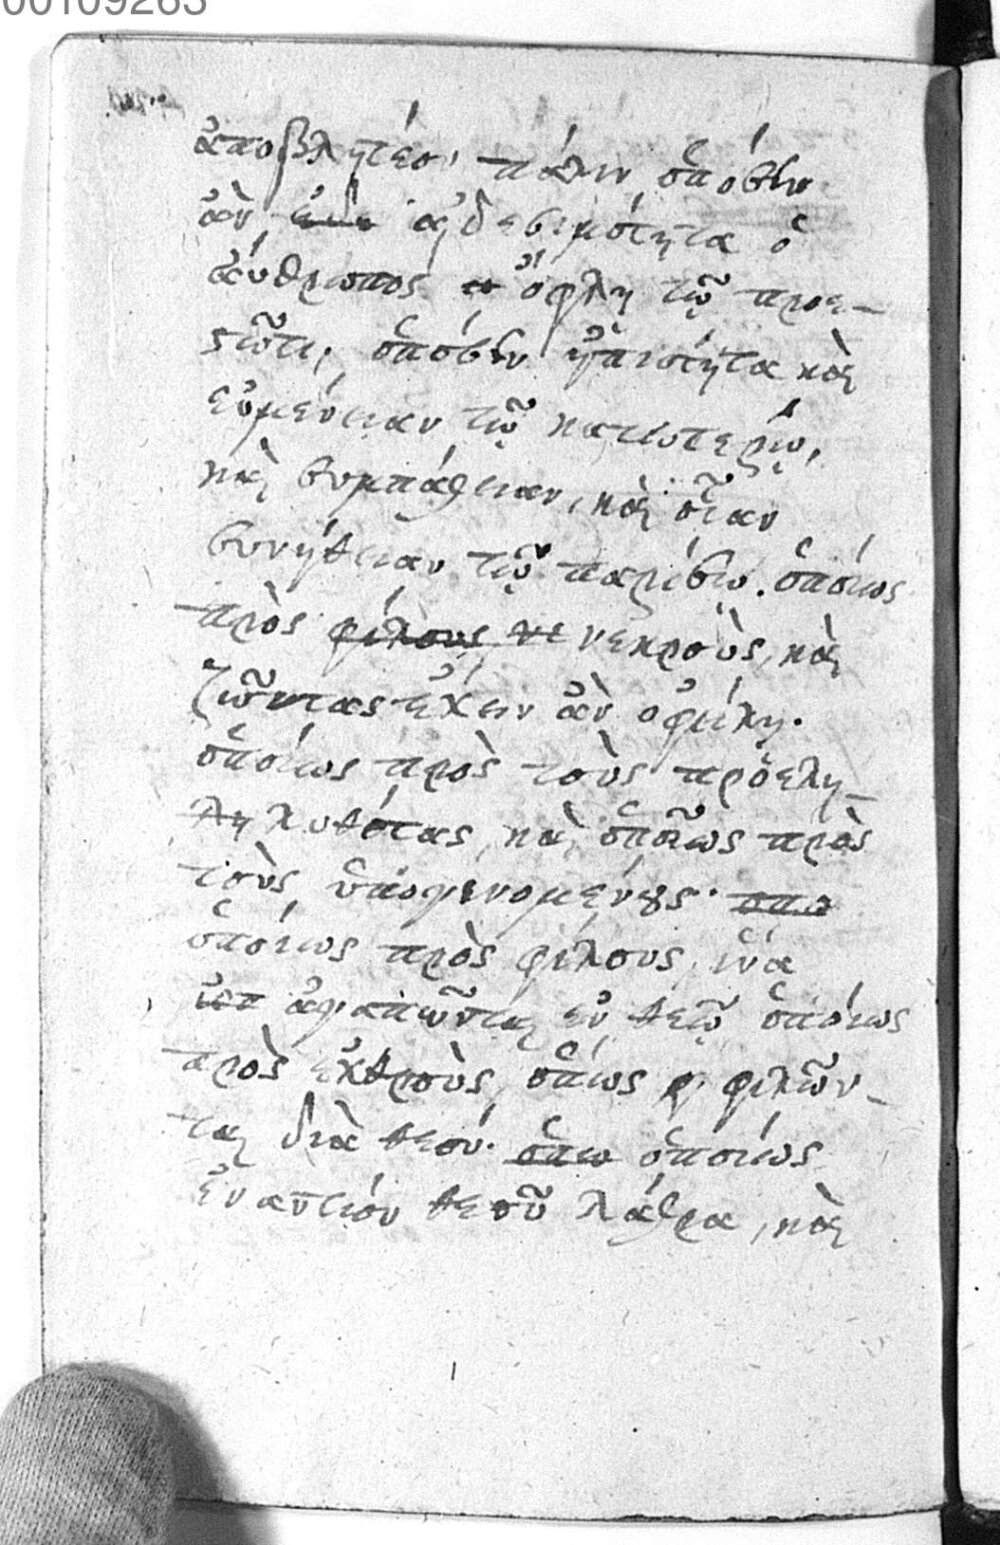 00109263
ἀποβλητέσ· πάλιν ὁπόσην
ἀν αἰδεσιμότητα ὁ
ἄνθρωπος ὄφλη τῷ προε-
στῶτι, ὁπόσην ἠπιότητα καὶ
εὐμένειαν τῷ κατωτέρῳ,
καὶ συμπάθειαν, καὶ οἵαν
συνήθειαν τῷ παρίσῳ. ὁποίως
πρὸς φίλους νε νεκροὺς, καὶ
ζῶντας ἔχειν ἀν ὀφείλῃ.
ὁποίως πρὸς τοὺς προελη-
λη λυθότας, καὶ ὁποίως πρὸς
τοὺς ὑπογενομένους· οπο
ὁποίως πρὸς φίλους, ἵνα
ἀγαπῶνται ἐν θεῷ ὁποίως
πρὸς ἐχθροὺς, ὅπως φιλῶν-
ται διὰ θεόν. ὁπω ὁποίως
ἐναντίον θεοῦ λάθρα, καὶ